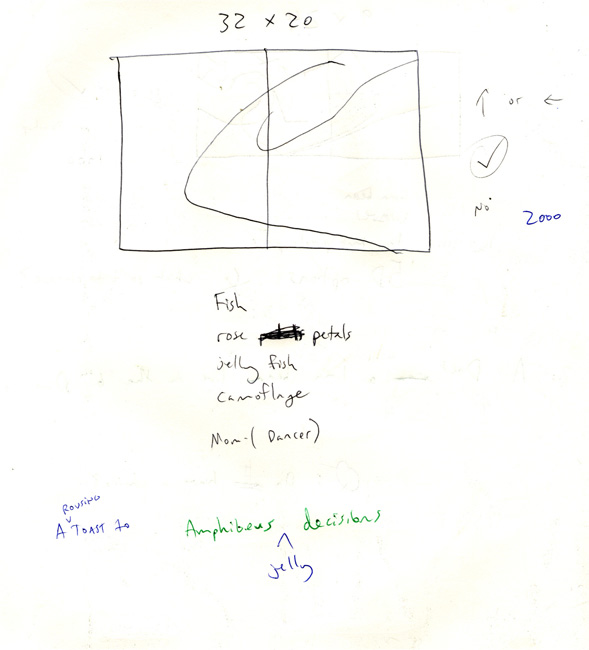 32 x 20
↑ or ←
✓
No
2000
Fish
rose petals petals
jelly fish
camoflage
Mom-( Dancer)
ROUSING
A TOAST to Amphibeus decisions
jelly